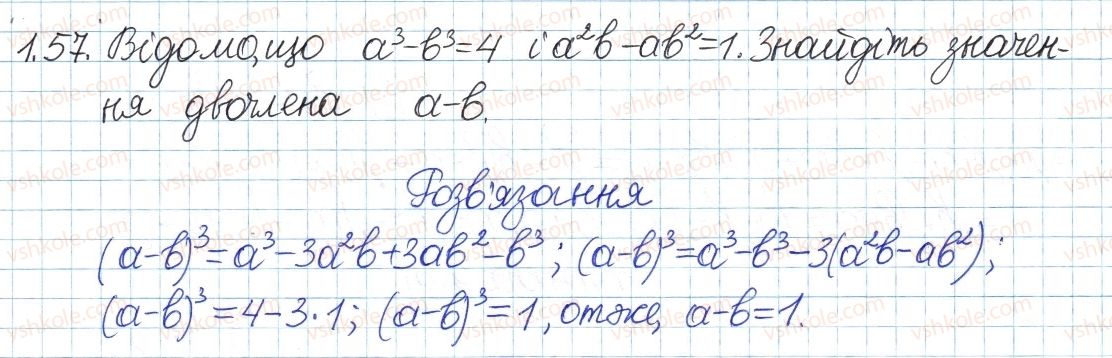 1.57. Відомо, що a³-b³=4 і a²b-ab²=1. Знайдіть значен-
ня двочлена a-b.
Розв'язання
(a-b)³=a³-3a²b+3ab²-b³; (a-b)³=a³-b³-3(a²b-ab²);
(a-b)³=4-3·1; (a-b)³=1, отже, a-b=1.